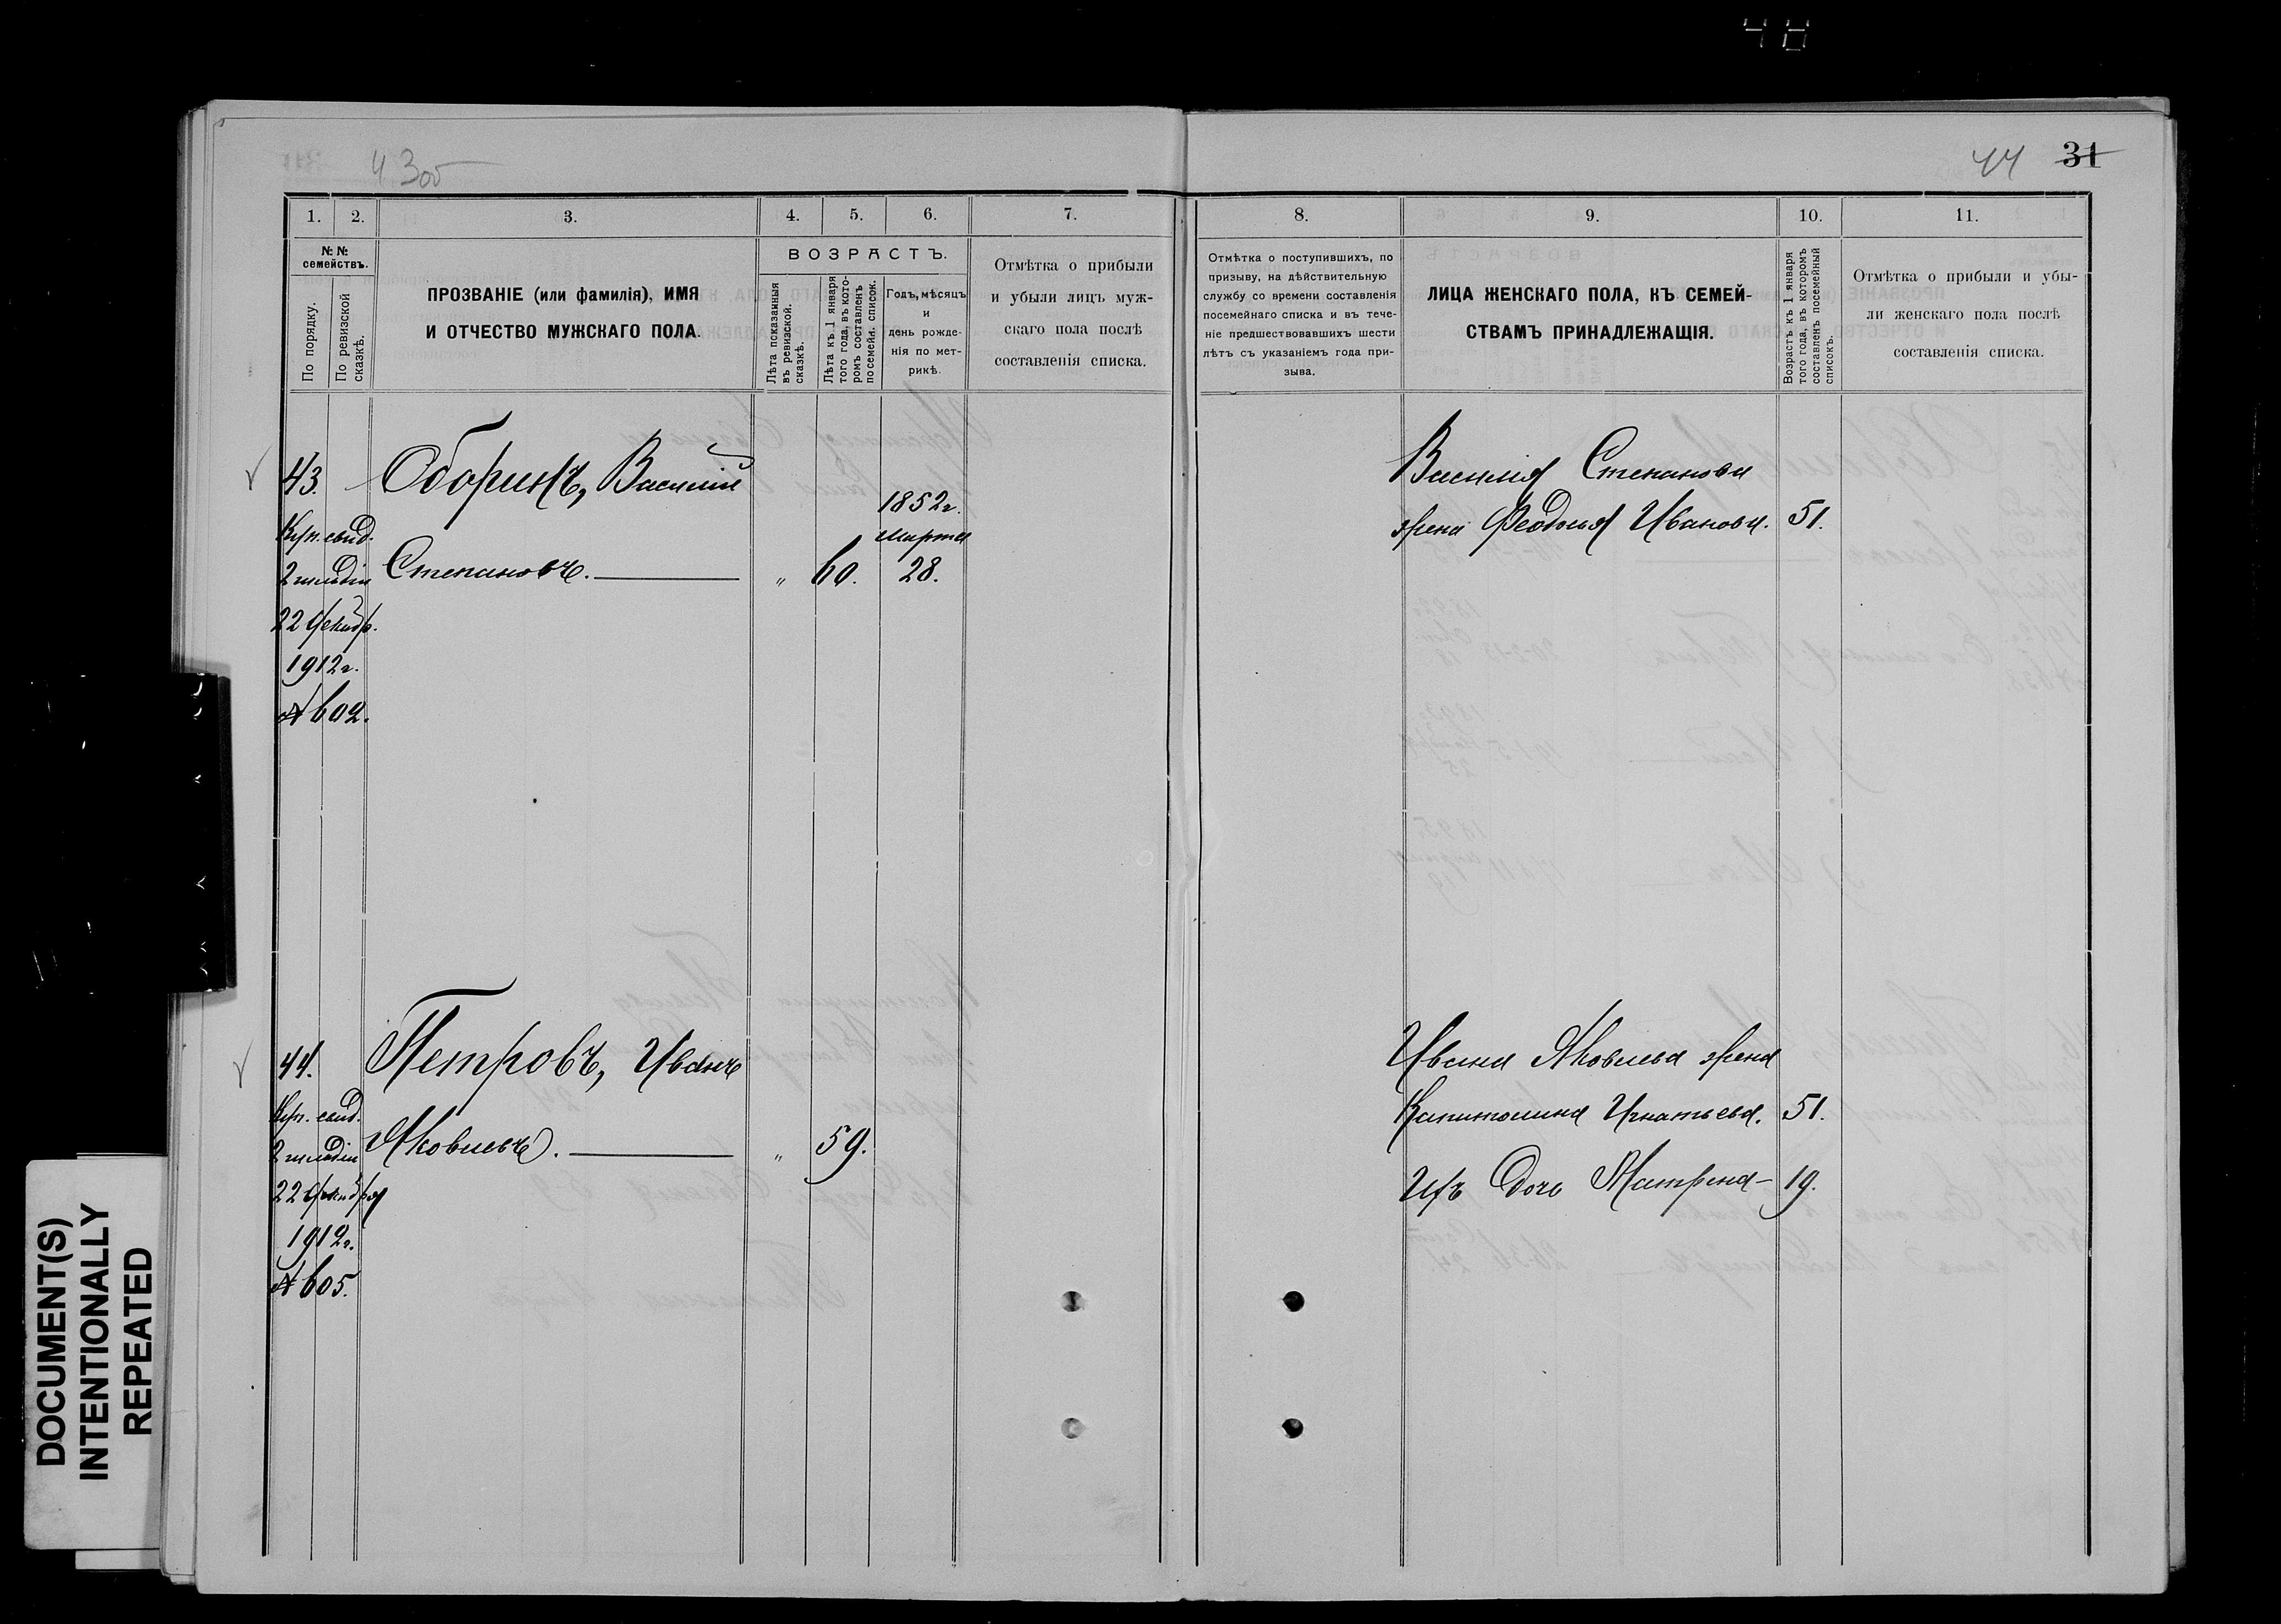 48
43об
44 31
1. 2. 3. 4. 5. 6. 7.
№ № семействъ.
По порядку.
По ревизской сказкѣ.
ПРОЗВАНІЕ (или фамилія), ИМЯ
И ОТЧЕСТВО МУЖСКАГО ПОЛА.
ВОЗРАСТЪ.
Лѣта показанныя
въ ревизской.
сказкѣ.
Лѣта къ 1 января
того года, въ кото-
ромъ составленъ
посемейн. список.
Годъ, мѣсяцъ
и
день рожде-
нія по мет-
рикѣ.
Отмѣтка о прибыли
и убыли лицъ муж-
скаго пола послѣ
составленія списка.
8. 9. 10. 11.
Отмѣтка о поступившихъ, по
призыву, на дѣйствительную
службу со времени составленія
посемейнаго списка и въ тече-
ніе предшествовавшихъ шести
лѣтъ съ указаніемъ года при-
зыва.
ЛИЦА ЖЕНСКАГО ПОЛА, КЪ СЕМЕЙ-
СТВАМЪ ПРИНАДЛЕЖАЩІЯ.
Возрастъ къ 1 января
того года, въ которомъ
составленъ посемейный
списокъ.
Отмѣтка о прибыли и убы-
ли женскаго пола послѣ
составленія списка.
43. Оборинъ, Василій
Куп. свид.
2 гильдіи Степановъ. — „ 60. 1852г. марта 28.
22 Декабр.
1912г.
№ 602.
Василія Степанова
жена Феодосья Иванова. 51.
44. Петровъ, Иванъ
Куп. свид.
2 гильдіи Яковлевъ. — „ 59.
22 Декабря
1912г.
№ 605.
Ивана Яковлева жена
Капитолина Игнатьева. 51.
Ихъ дочь Матрена — 19.
DOCUMENT(S)
INTENTIONALLY
REPEATED